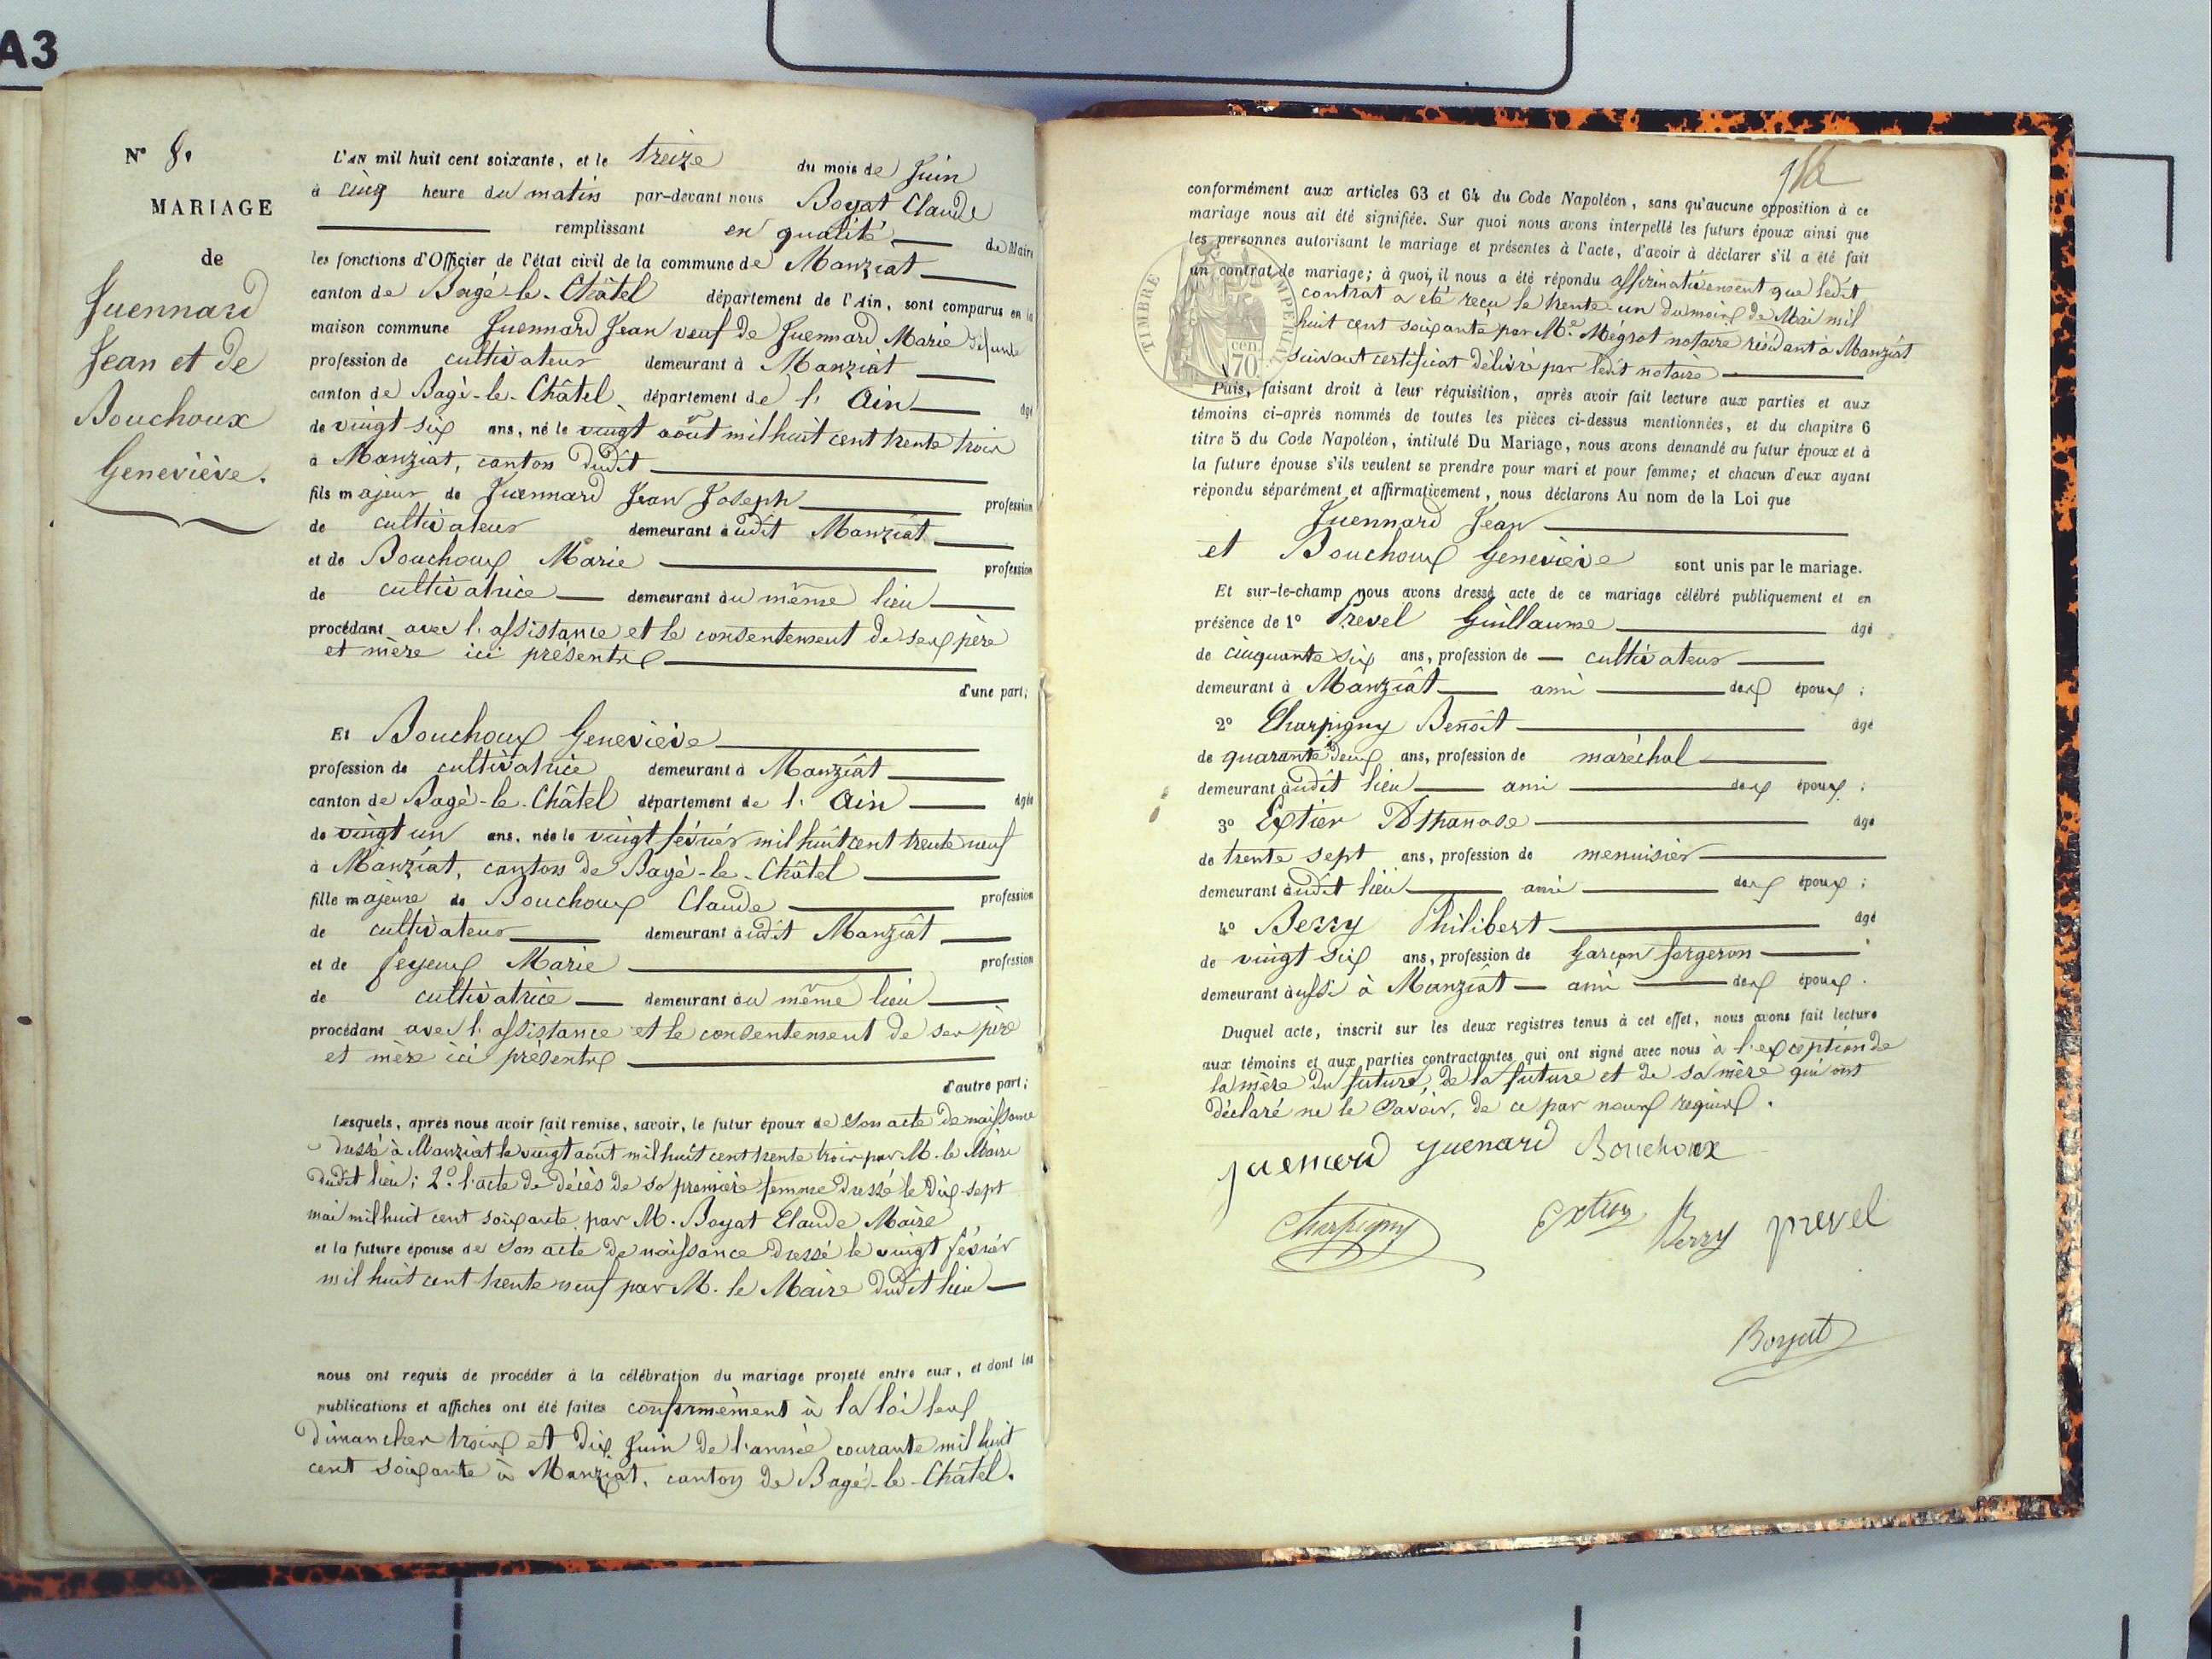 A3
N° 8.
MARIAGE
de
Juennard
Jean et de
Bouchoux
Geneviève.
L'AN mil huit cent soixante, et le treize du mois de Juin
à cinq heure du matin par-devant nous Boyat Claude
remplissant en qualité de Maire
les fonctions d'Officier de l'état civil de la commune de Manziat
canton de Bagé-le-Châtel département de l'Ain, sont comparus en la
maison commune Juennard Jean veuf de Juennard Marie défunte
profession de cultivateur demeurant à Manziat
canton de Bagé-le-Châtel département de l'Ain âgé
de vingt six ans, né le vingt août mil huit cent trente trois
à Manziat, canton dudit
fils majeur de Juennard Jean Joseph profession
de cultivateur demeurant audit Manziat
et de Bouchoux Marie profession
de cultivatrice demeurant au même lieu
procédant avec l'assistance et le consentement de ses père
et mère ici présents
d'une part;
Et Bouchoux Geneviève
profession de cultivatrice demeurant à Manziat
canton de Bagé-le-Châtel département de l'Ain âgée
de vingt un ans, née le vingt février mil huit cent trente neuf
à Manziat, canton de Bagé-le-Châtel
fille majeure de Bouchoux Claude profession
de cultivateur demeurant audit Manziat
et de Feyeux Marie profession
de cultivatrice demeurant au même lieu
procédant avec l'assistance et le consentement de ses père
et mère ici présents
d'autre part;
Lesquels, après nous avoir fait remise, savoir, le futur époux de son acte de naissance
dressé à Manziat le vingt août mil huit cent trente trois par M. le Maire
dudit lieu; 2° l'acte de décès de sa première femme dressé le dix-sept
mai mil huit cent soixante par M. Boyat Claude Maire
et la future épouse de son acte de naissance dressé le vingt février
mil huit cent trente neuf par M. le Maire dudit lieu
nous ont requis de procéder à la célébration du mariage projeté entre eux, et dont les
publications et affiches ont été faites conformément à la loi les
dimanches trois et dix Juin de l'année courante mil huit
cent soixante à Manziat, canton de Bagé-le-Châtel.
conformément aux articles 63 et 64 du Code Napoléon, sans qu'aucune opposition à ce
mariage nous ait été signifiée. Sur quoi nous avons interpellé les futurs époux ainsi que
les personnes autorisant le mariage et présentes à l'acte, d'avoir à déclarer s'il a été fait
un contrat de mariage; à quoi, il nous a été répondu affirmativement que ledit
contrat a été reçu le trente-un du mois de Mai mil
huit cent soixante par Me Mégrot notaire résidant à Manziat
suivant certificat délivré par ledit notaire
TIMBRE IMPERIAL
70 cen
Puis, faisant droit à leur réquisition, après avoir fait lecture aux parties et aux
témoins ci-après nommés de toutes les pièces ci-dessus mentionnées, et du chapitre 6
titre 5 du Code Napoléon, intitulé Du Mariage, nous avons demandé au futur époux et à
la future épouse s'ils veulent se prendre pour mari et pour femme; et chacun d'eux ayant
répondu séparément et affirmativement, nous déclarons Au nom de la Loi que
Juennard Jean
et Bouchoux Geneviève sont unis par le mariage.
Et sur-le-champ nous avons dressé acte de ce mariage célébré publiquement et en
présence de 1° Prevel Guillaume âgé
de cinquante six ans, profession de cultivateur
demeurant à Manziat ami des époux;
2° Charpigny Benoît âgé
de quarante deux ans, profession de maréchal
demeurant audit lieu ami des époux;
3° Extier Athanase âgé
de trente sept ans, profession de menuisier
demeurant audit lieu ami des époux;
4° Berry Philibert âgé
de vingt six ans, profession de garçon forgeron
demeurant aussi à Manziat ami des époux.
Duquel acte, inscrit sur les deux registres tenus à cet effet, nous avons fait lecture
aux témoins et aux parties contractantes qui ont signé avec nous à l'exception de
la mère du futur, de la future et de sa mère qui ont
déclaré ne le savoir, de ce par nous requis.
juenard guenard Bouchoux
Charpigny Extier Berry prevel
Boyat